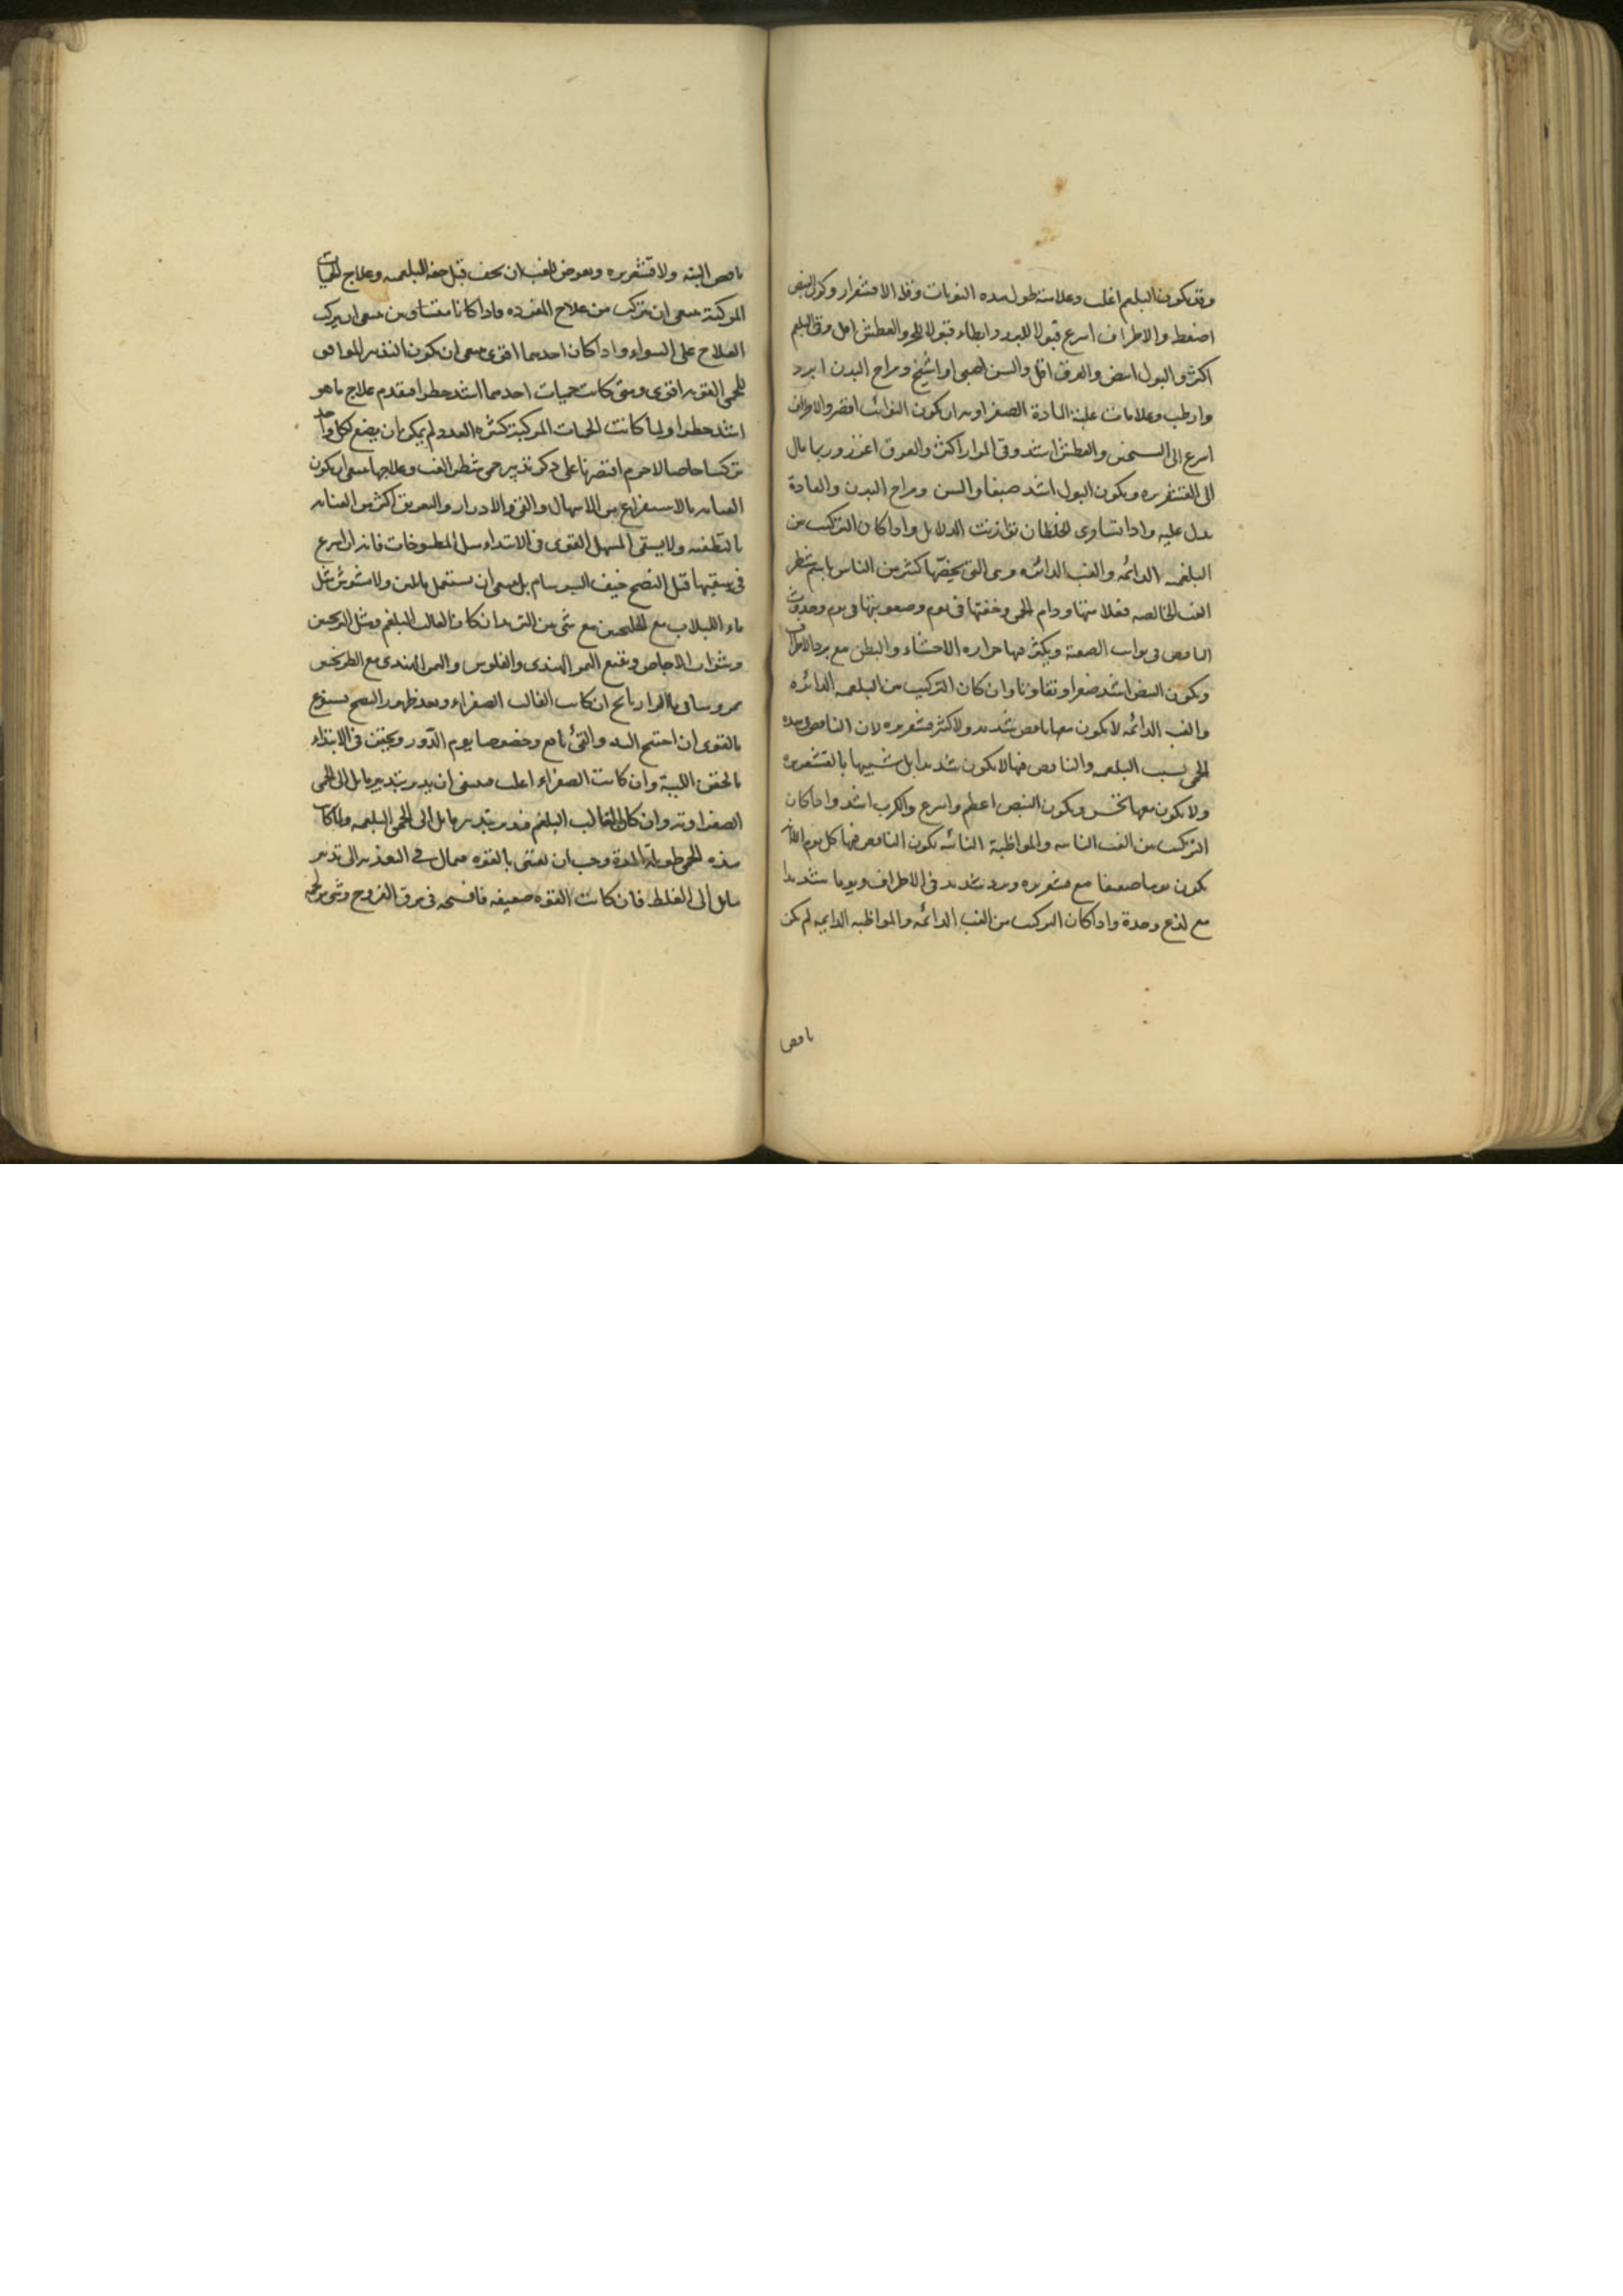 وقد يكون البلغم اغلب وعلامته طول مده النوبات وقله الاقشعرار وكون النبض
اضغط والاطراف اسرع قبولا للبرد وابطاء قبولا للحر والعطش اقل وقئ البلغم
اكثر والبول ابيض والعرق اقل والسن الصبى او الشيخ ومزاج البدن ابرد
وارطب وعلامات غلبة المادة الصفراويه ان يكون النوائب اقصر والاطراف
اسرع الى التسخن والعطش اشد وقئ المرار اكثر والعرق اغزر وربما مال
الى القشعريره ويكون البول اشد صبغا والسن ومزاج البدن والعادة
يدل عليه واذا تساوى الخلطان توازنت الدلايل واذا كان التركيب من
البلغميه الدائمه والغب الدائره وهى التى يخصها كثير من الناس باسم شطر
الغب الخالصه فعلامتها دوام الحمى وخفتها فى يوم وصعوبتها فى يوم وحدوث
النافض فى نوايب الصعبة ويكثر فيها حراره الاحشاء والبطن مع برد الاطراف
ويكون النبض اشد صغرا وتفاوتا وان كان التركيب من البلغميه الدائره
والغب الدائمه لا يكون معها نافض شديد ولا كثير قشعريره لان النافض فى هذه
الحمى بسبب البلغميه والنافض فيها لا يكون شديدا بل شبيها بالقشعريره
ولا يكون معها نخس ويكون النبض اعظم واسرع والكرب اشد واذا كان
التركيب من الغب النائبه والمواظبة النائبه يكون النافض فيها كل يوم الا انه
يكون يوما ضعيفا مع قشعريره وبرد شديد فى الاطراف ويوما شديدا
مع لذع وحدة واذا كان التركيب من الغب الدائمه والمواظبه الدايمه لم يكن
نافض
نافض البته ولا قشعريره ويعرض للغب ان يخف قبل خفه البلغميه وعلاج الحميات
المركبة ينبغى ان يتركب من علاج المفرده واذا كانا متساويين ينبغى ان يركب
العلاج على السواء واذا كان احدهما اقوى ينبغى ان يكون التدبير الموافق
للحمى القويه اقوى ومتى كانت حميات احدهما اشد خطرا فيقدم علاج ما هو
اشد خطرا ولما كانت الحميات المركبة كثيره العدد لم يمكن ان يضع لكل واحد
تركيبا خاصا لا جرم اقتصرنا على ذكر تدبير حمى شطر الغب وعلاجها ينبغى ان يكون
العنايه بالاستفراغ من الاسهال والقئ والادرار والتعريق اكثر من العنايه
بالتطفيه ولا يسقى المسهل القوى فى الابتداء مثل المطبوخات فانه ان اسرع
فى سقيها قبل النضج خيف السرسام بل ينبغى ان يستعمل ما يلين ولا يشوش مثل
ماء اللبلاب مع الجلنجبين مع شئ من التربد ان كان الغالب البلغم ومثل الترنجبين
وشراب الاجاص ونقيع التمر الهندى والفلوس والتمر الهندى مع الطرنجبين
ان كان الغالب الصفراء وبعد ظهور النضج يستفرغ
بالقوى ان احتيج اليه والقئ نافع وخصوصا يوم الدور ويحقن فى الابتداء
بالحقن اللينة وان كانت الصفراء اغلب فينبغى ان يدبر بتدبير مايل الى الحمى
الصفراويه وان كان الغالب البلغم فيدبر بتدبير مايل الى الحمى البلغميه ولما كانت
هذه الحمى طويلة المدة وجب ان يعتنى بالقوه فيمال فى التغذيه الى تدبير
مايل الى الغلظ فان كانت القوه ضعيفه فافسح فى مرق الفروج وشئ من لحمه